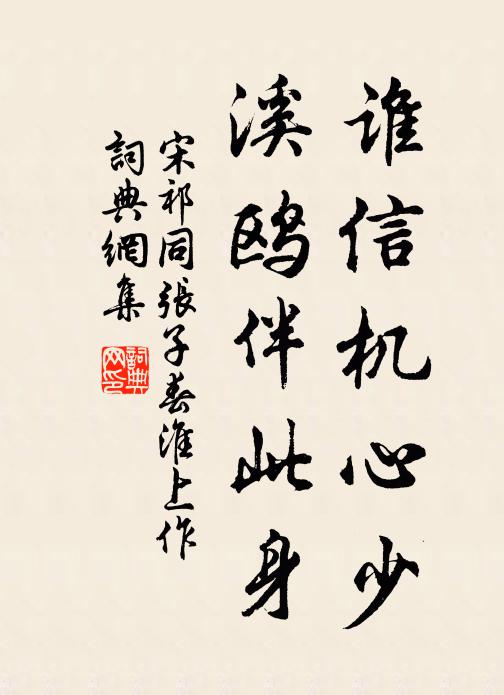 谁信机心少
溪鸥伴此身
宋祁同張子春淮上作
詞典網集
詞典
网印